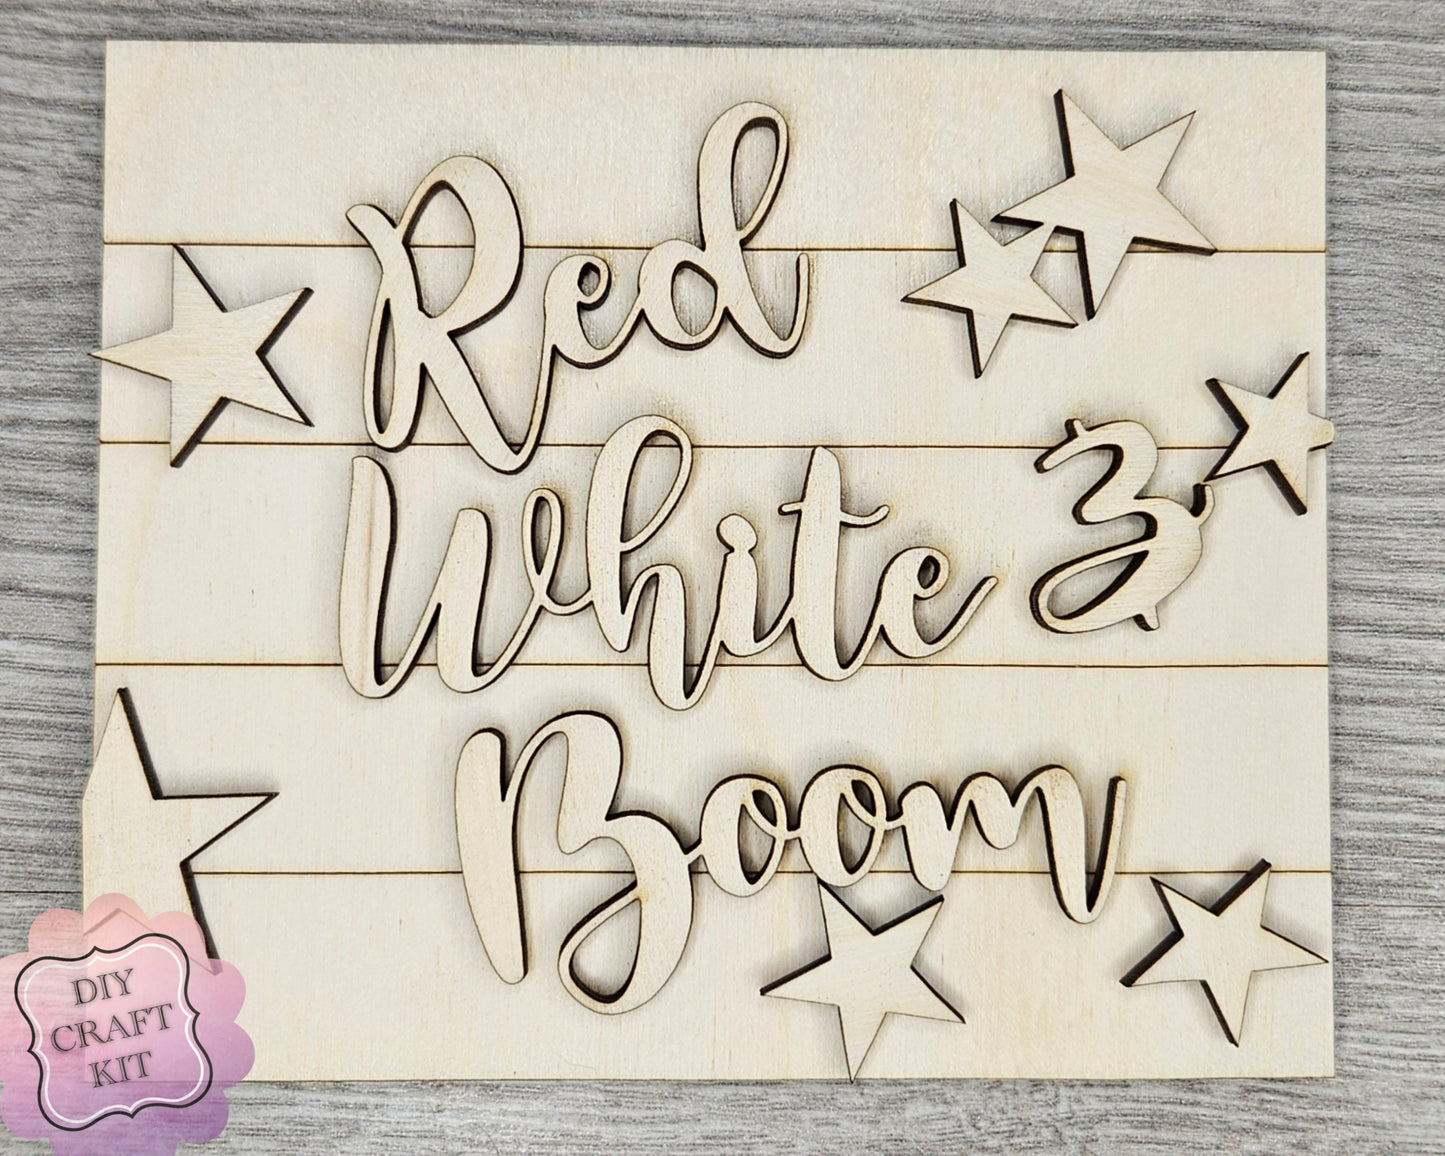 Red
White &
Boom
DIY
CRAFT
KIT